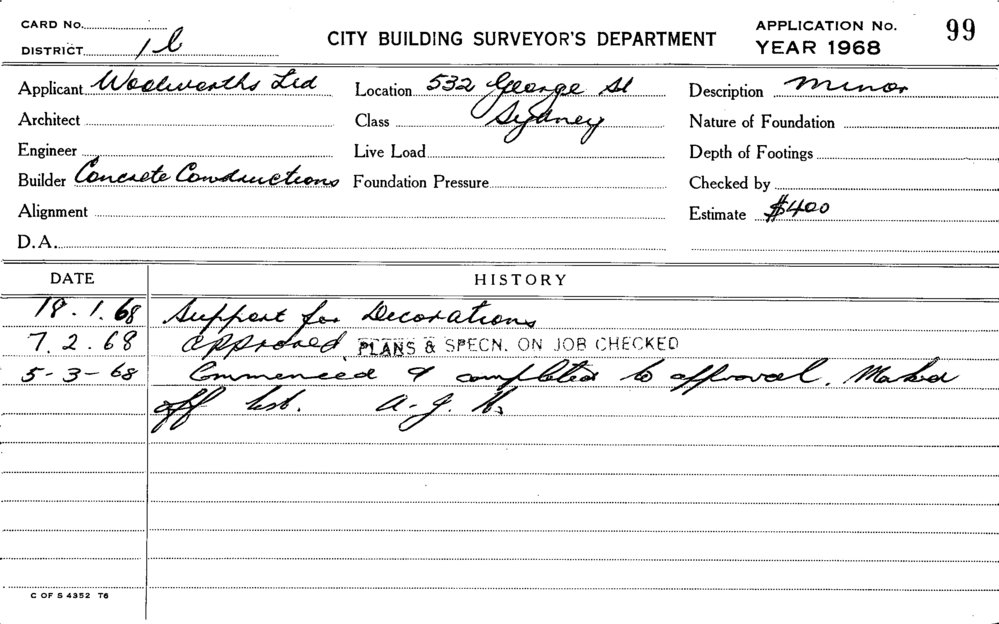 CARD No.
DISTRICT 1b
CITY BUILDING SURVEYOR'S DEPARTMENT
APPLICATION No. 99
YEAR 1968
Applicant Woolworths Ltd
Location 532 George St
Sydney
Description Minor
Architect
Class
Nature of Foundation
Engineer
Live Load
Depth of Footings
Builder Concrete Constructions
Foundation Pressure
Checked by
Alignment
Estimate $400
D.A.
DATE HISTORY
18.1.68 Support for Decorations
7.2.68 Approved PLANS & SPECN. ON JOB CHECKED
5-3-68 Commenced & completed to approval. Marked
off list. A.J.
C OF S 4352 T6